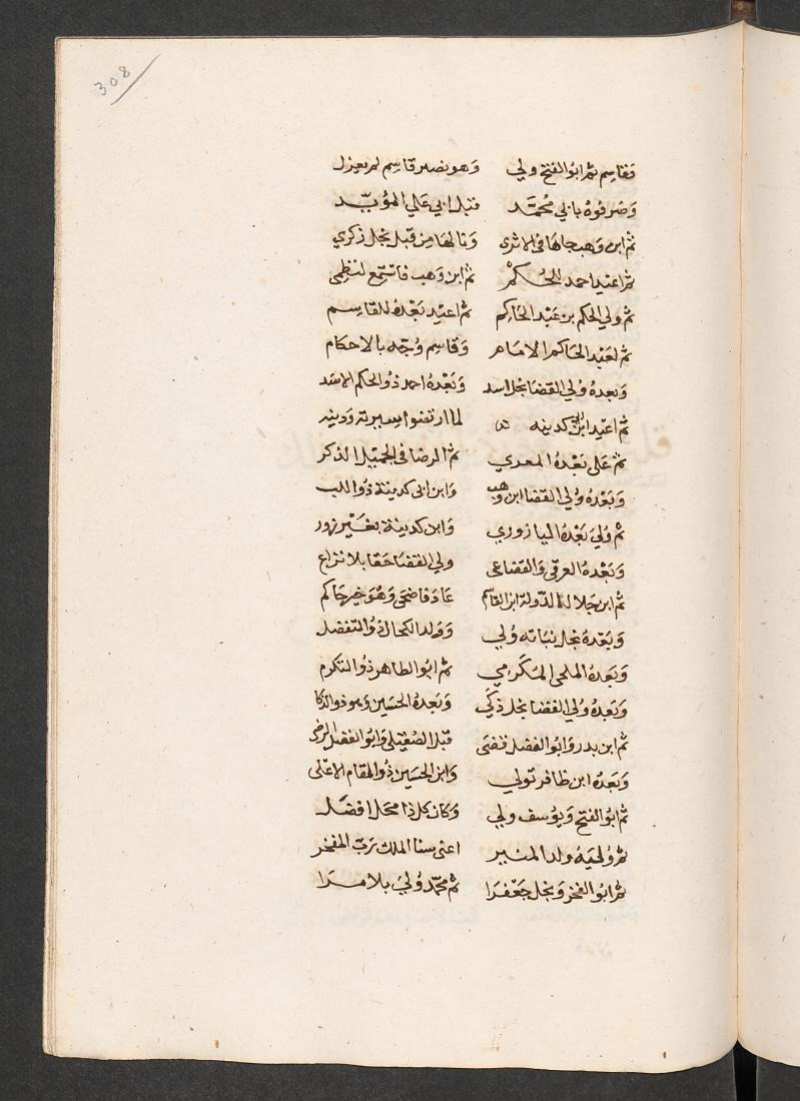 308
فقاسم ثم ابو الفتح ولي وهو نصير قاسم لم يعزل
وصرفوه بابي محمد قبل ابي علي المؤيد
ثم ابن وهب جاها في الاثري ونالها من قبل نجل ذكري
ثم اعيد احمد للحكم ثم ابن وهب فاستمع لنظمي
ثم ولي الحكم بن عبد الحاكم ثم اعيد بعده للقاسم
ثم لعبد الحاكم الامام وقاسم وجه بالاحكام
وبعده ولي القضا نجل اسد وبعده احمد ذو الحكم الاسد
ثم اعيد ابن ابي كدينه لما ارتضوا سيرته ودينه
ثم علي بعده المعري ثم الرضا في الجميل الذكر
وبعده ولي القضا ابن وهب وابن ابي كدينة ذو اللب
ثم ولي بعده اليازوري وابن كدينة بغير زور
وبعده العرقي والقضاعي ولي القضا حقا بلا نزاع
ثم ابن جلال الدولة ابن القاسم عاد فاضحى وهو خير حاكم
وبعده نجل نباته ولي وولد الكحال ذو التفضل
وبعده الملحي المكرمي ثم ابو الطاهر ذو التكرم
وبعده ولي القضا نجل ذكي وبعده الحسين وهو ذو الذكا
ثم ابن بدر وابو الفضل ففتى قبل الصقيلي وابو الفضل الرضي
وبعده ابن ظافر تولي وابن الحسين ذو المقام الاعلى
ثم ابو الفتح ويوسف ولي وكان كل ذا محل افضل
ثم ولد المنير اعني سنا الملك رب المفخر
ثم ابو الفخر ونجل جعفرا ثم محمد ولي بلا مرا